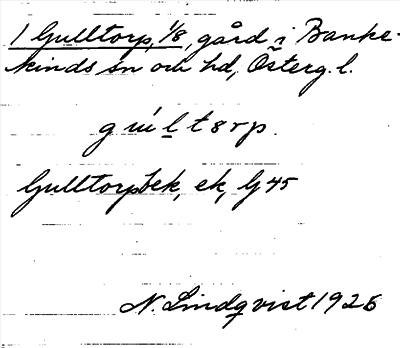 1 Gulltorp, 1/8, gård i Banke-
kinds sn och hd, Österg. l.
gúlt8rp.
Gulltorp bek, ek, Gj 45
N. Lindqvist 1925